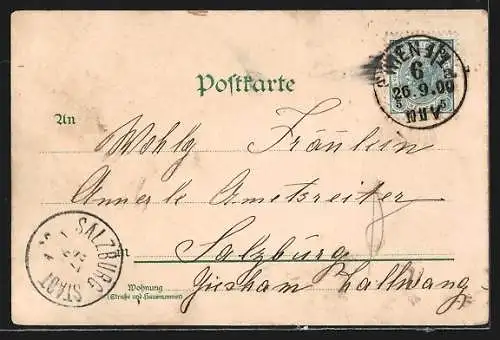 Postkarte
WIEN
6
26.9.00
5 5
An
Wohlg Fräulein
Annerle Ametsreiter
in Salzburg
Giesham Hallwang
Wohnung
(Straße und Hausnummer)
SALZBURG STADT